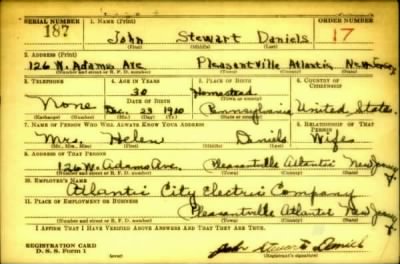 SERIAL NUMBER 1. NAME (Print) ORDER NUMBER
187 John Stewart Daniels 17
(First) (Middle) (Last)
2. ADDRESS (Print)
126 W. Adams Ave Pleasantville Atlantic New Jersey
(Number and street or R. F. D. number) (Town) (County) (State)
3. TELEPHONE 4. AGE IN YEARS 5. PLACE OF BIRTH 6. COUNTRY OF CITIZENSHIP
30 Homestead
None DATE OF BIRTH (Town or county)
Dec. 23 1910 Pennsylvania United States
(Exchange) (Number) (Mo.) (Day) (Yr.) (State or country)
7. NAME OF PERSON WHO WILL ALWAYS KNOW YOUR ADDRESS 8. RELATIONSHIP OF THAT PERSON
Mrs. Helen Daniels Wife
(Mr., Mrs., Miss) (First) (Middle) (Last)
9. ADDRESS OF THAT PERSON
126 W. Adams Ave. Pleasantville Atlantic New Jersey
(Number and street or R. F. D. number) (Town) (County) (State)
10. EMPLOYER'S NAME
Atlantic City Electric Company
11. PLACE OF EMPLOYMENT OR BUSINESS
Pleasantville Atlantic New Jersey
(Number and street or R. F. D. number) (Town) (County) (State)
I AFFIRM THAT I HAVE VERIFIED ABOVE ANSWERS AND THAT THEY ARE TRUE.
REGISTRATION CARD
D. S. S. Form 1 John Stewart Daniels
(over) (Registrant's signature)